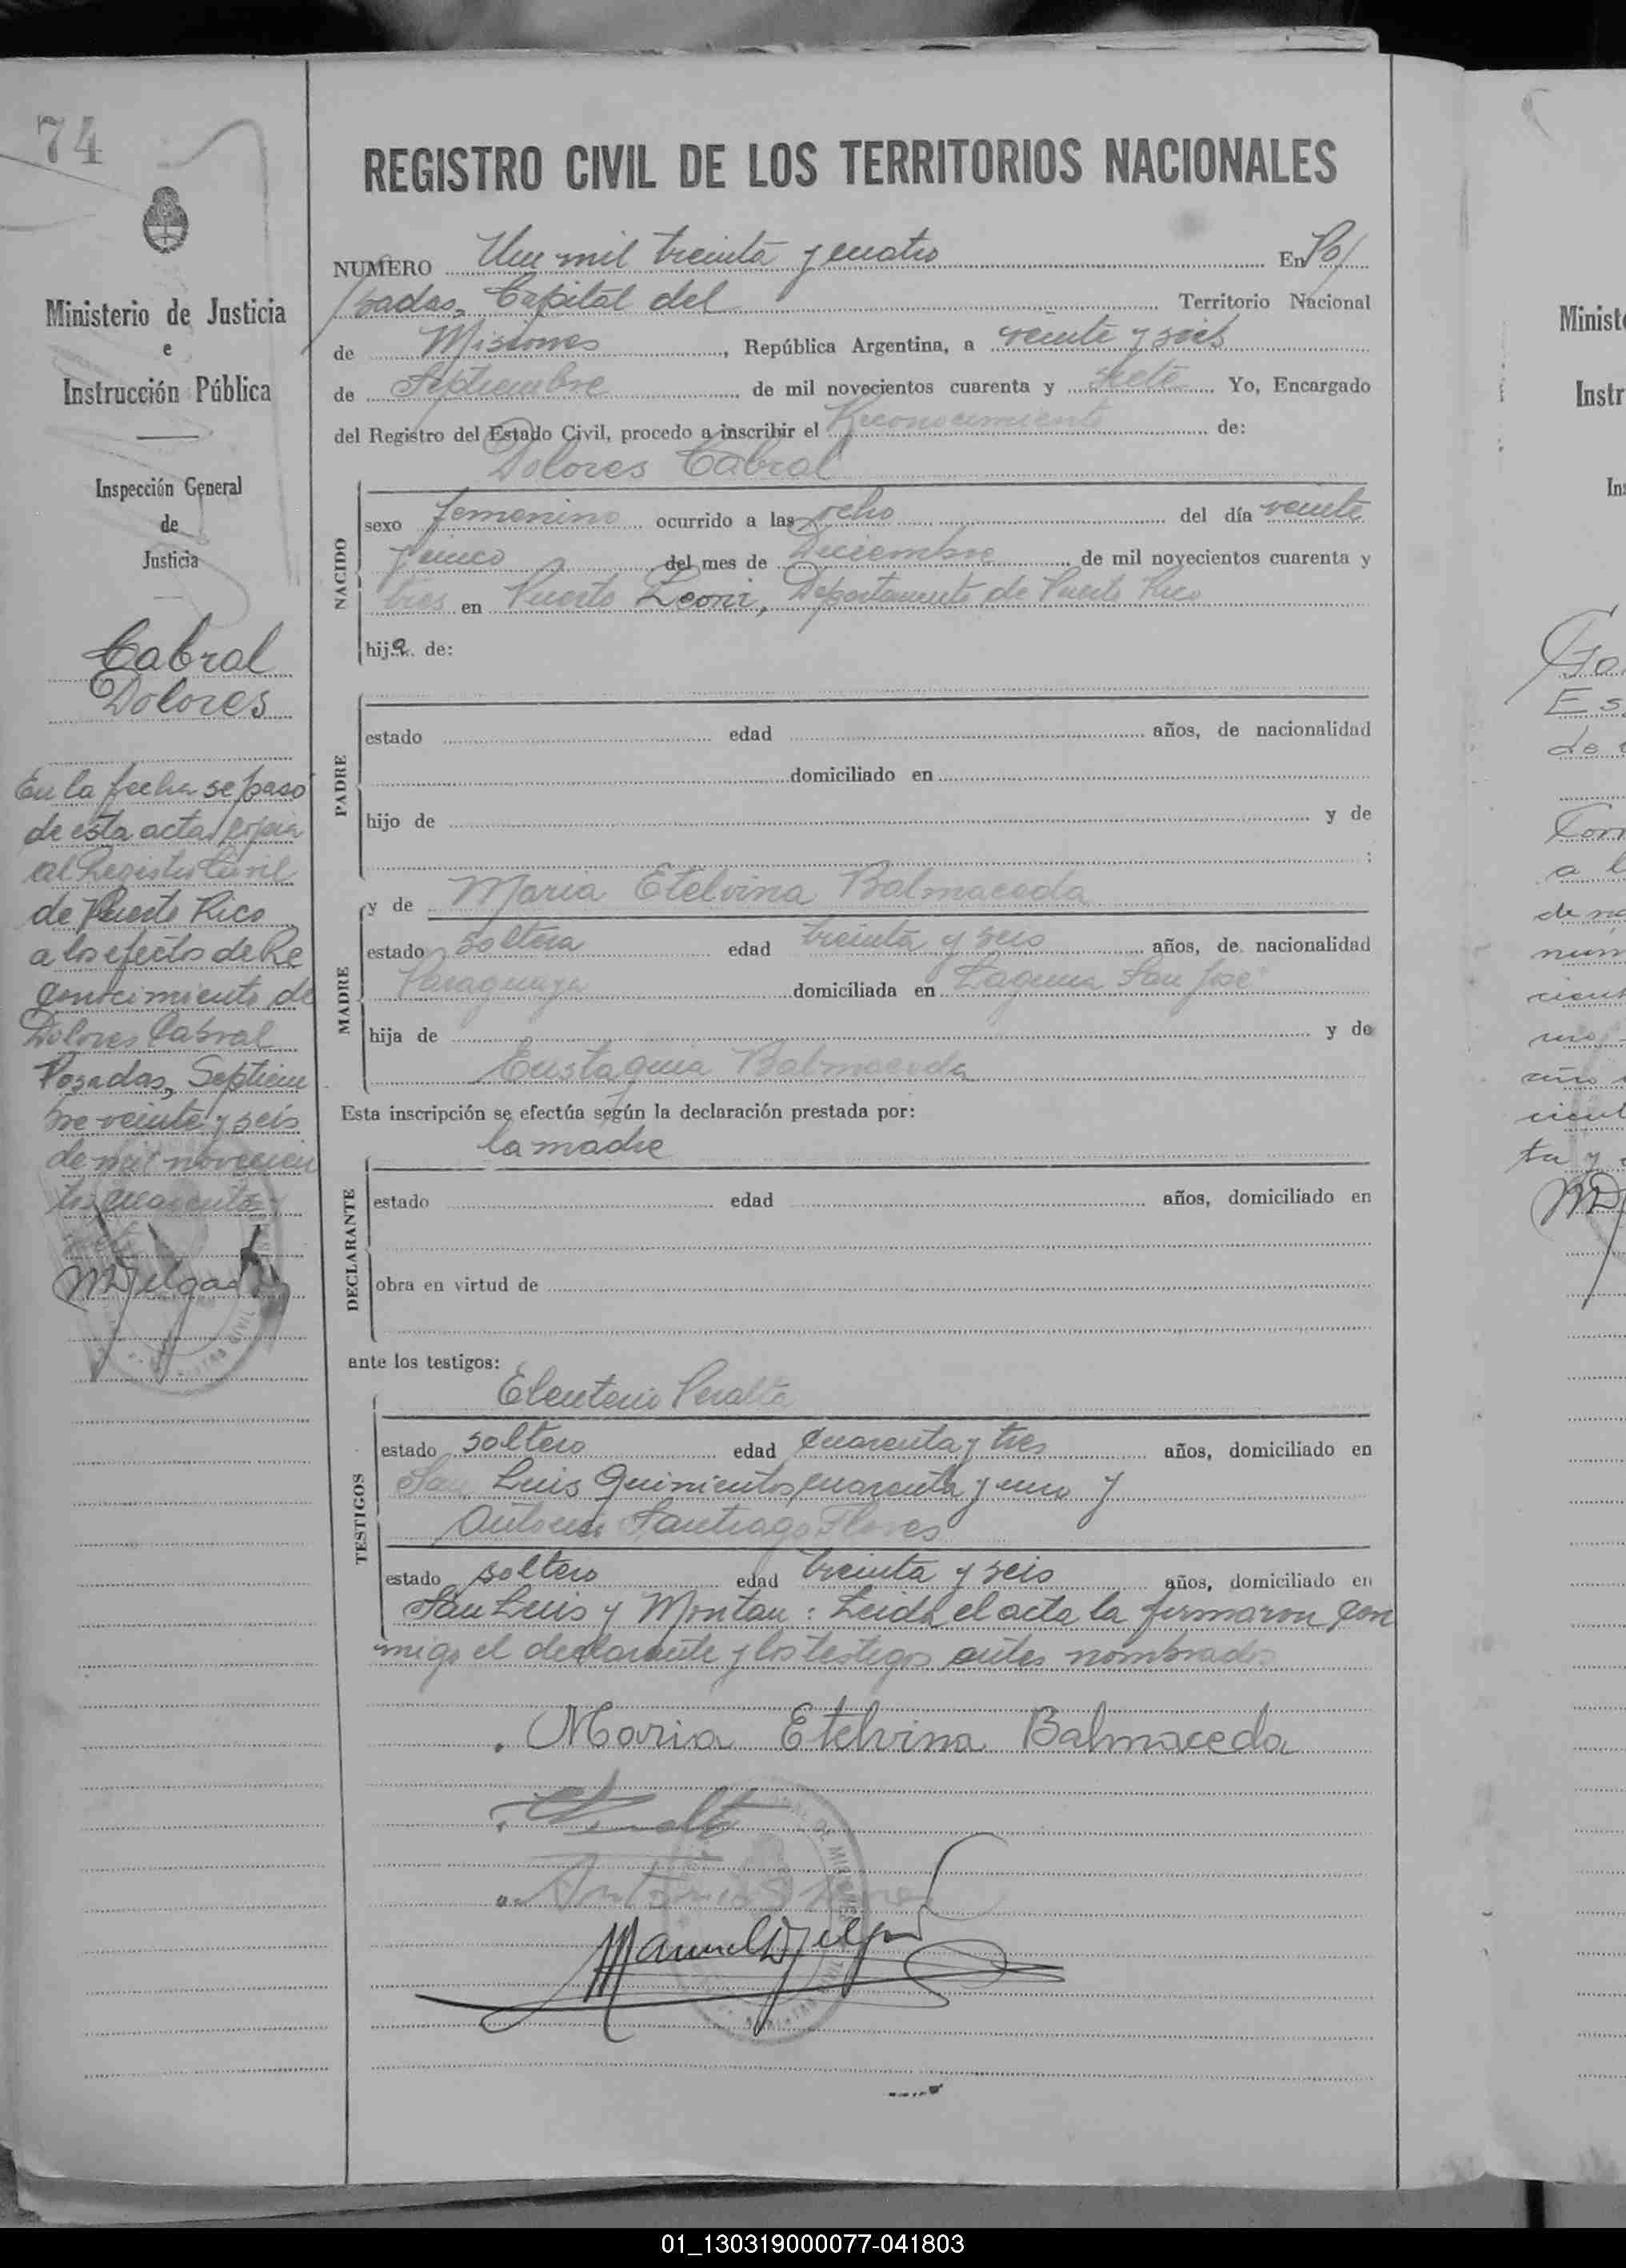 74
Ministerio de Justicia
e
Instrucción Pública
Inspección General
de
Justicia
Cabral
Dolores
En la fecha se paso
de esta acta copia
al Registro Civil
de Puerto Rico
a los efectos de Re
conocimiento de
Dolores Cabral
Posadas, Septiem
bre veinte y seis
de mil novecien
tos cuarenta y
siete
MDelgado
REGISTRO CIVIL DE LOS TERRITORIOS NACIONALES
NUMERO Un mil treinta y cuatro En Po/
/sadas, Capital del Territorio Nacional
de Misiones, República Argentina, a veinte y seis
de Septiembre de mil novecientos cuarenta y siete Yo, Encargado
del Registro del Estado Civil, procedo a inscribir el Reconocimiento de:
Dolores Cabral
NACIDO
sexo femenino ocurrido a las ocho del día veinte
y cinco del mes de Diciembre de mil novecientos cuarenta y
tres en Puerto Leoni, Departamento de Puerto Rico
hija de:
PADRE
estado edad años, de nacionalidad
domiciliado en
hijo de y de
;
MADRE
y de Maria Etelvina Balmaceda
estado soltera edad treinta y seis años, de nacionalidad
Paraguaya domiciliada en Laguna San José
hija de y de
Eustaquia Balmaceda
Esta inscripción se efectúa según la declaración prestada por:
la madre
DECLARANTE
estado edad años, domiciliado en
obra en virtud de
ante los testigos:
TESTIGOS
Eleuterio Peralta
estado soltero edad cuarenta y tres años, domiciliado en
San Luis quinientos cuarenta y uno y
Antonio Santiago Flores
estado soltero edad treinta y seis años, domiciliado en
San Luis y Montau : Leida el acta la firmaron con
migo el declarante y los testigos antes nombrados
Maria Etelvina Balmaceda
Manuel Delgado
Minist
Instr
In
Ga
Es
de
a l
de na
num
cient
uno
ta y
MD
01_130319000077-041803